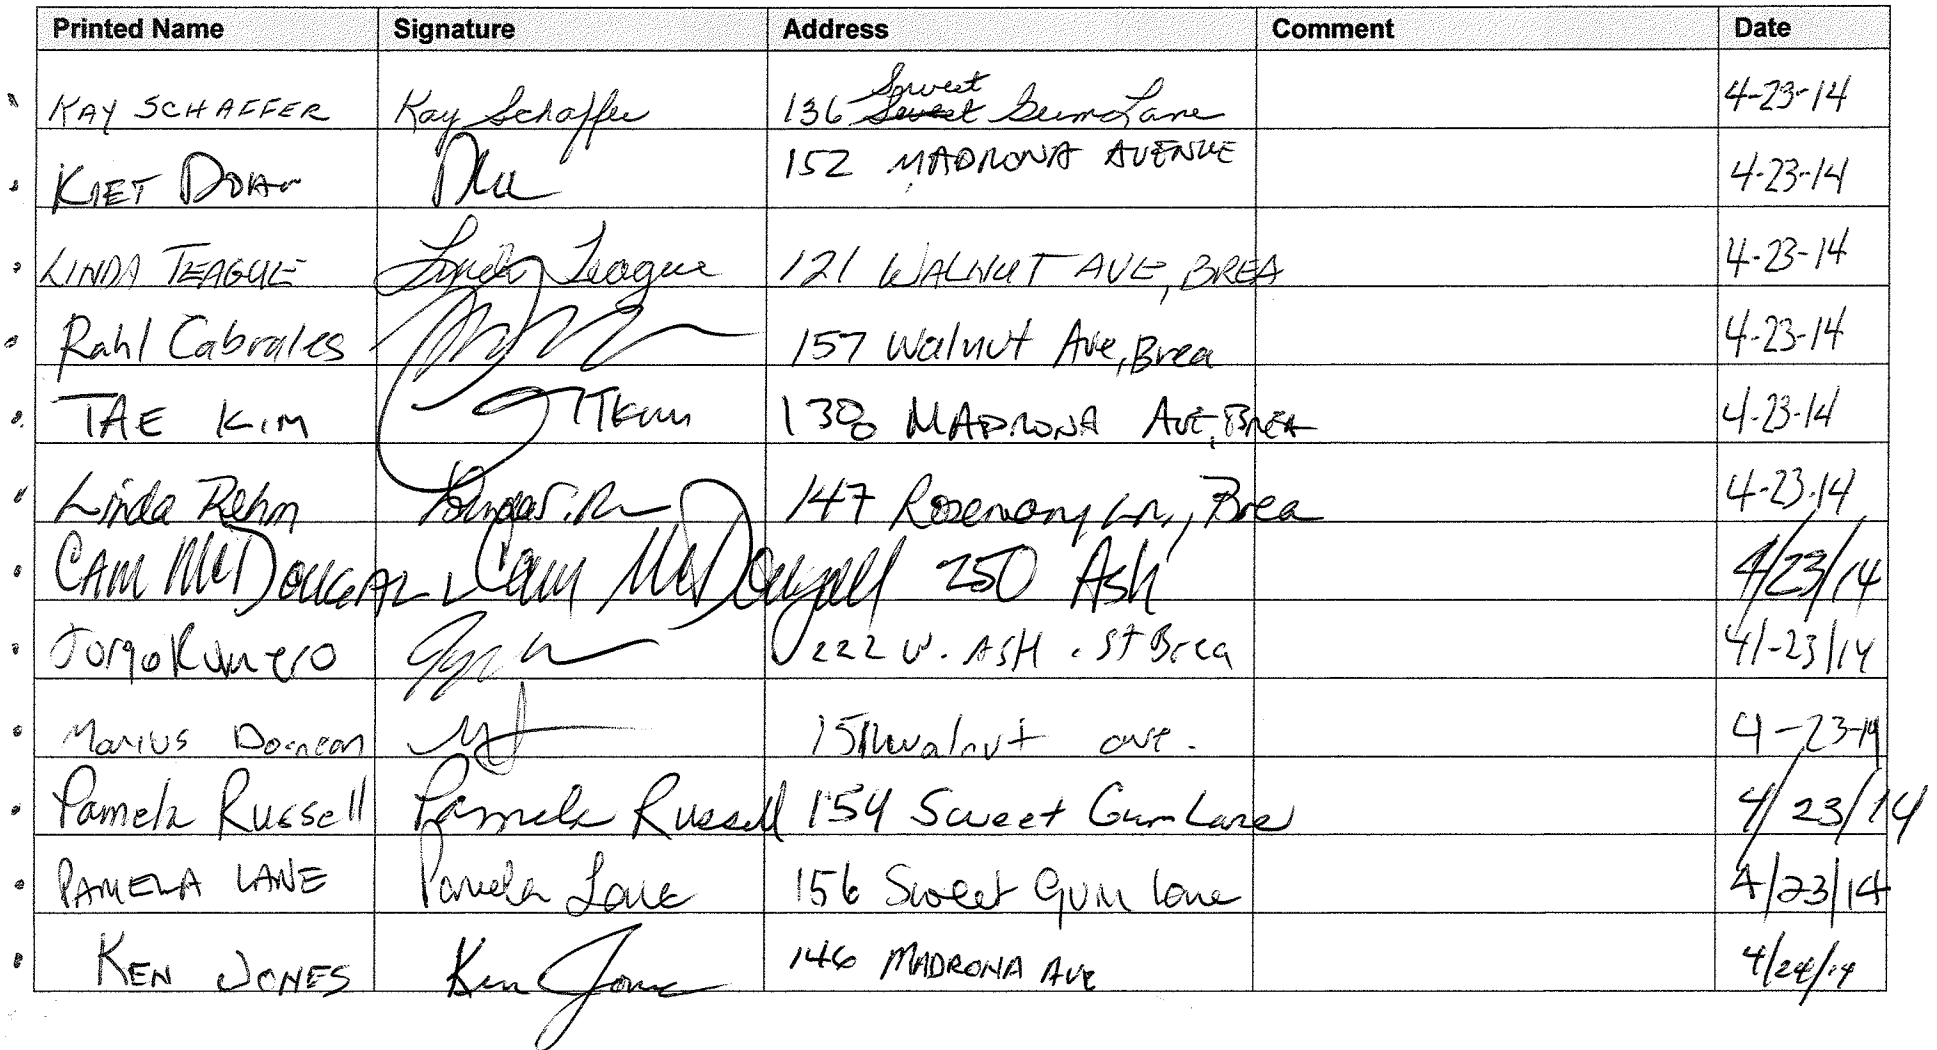 Printed Name Signature Address Comment Date
KAY SCHAFFER Kay Schaffer 136 Sweet Sweet Gum Lane 4-23-14
KIET DOAN 152 MADRONA AVENUE 4-23-14
LINDA TEAGUE Linda Teague 121 WALNUT AVE, BREA 4-23-14
Rahl Cabrales 157 Walnut Ave, Brea 4-23-14
TAE KIM TKim 138 MADRONA AVE, BREA 4-23-14
Linda Rehm 147 Rosemary Ln., Brea 4-23-14
CAM McDOUGALL Cam McDougall 250 Ash 4/23/14
Jorge Romero 222 W. ASH . St Brea 4/-23/14
Marius Walnut ave. 4-23-14
Pamela Russell Pamela Russell 154 Sweet Gum Lane 4/23/14
PAMELA LANE Pamela Lane 156 Sweet Gum lane 4/23/14
KEN JONES Ken Jones 146 MADRONA AVE 4/24/14